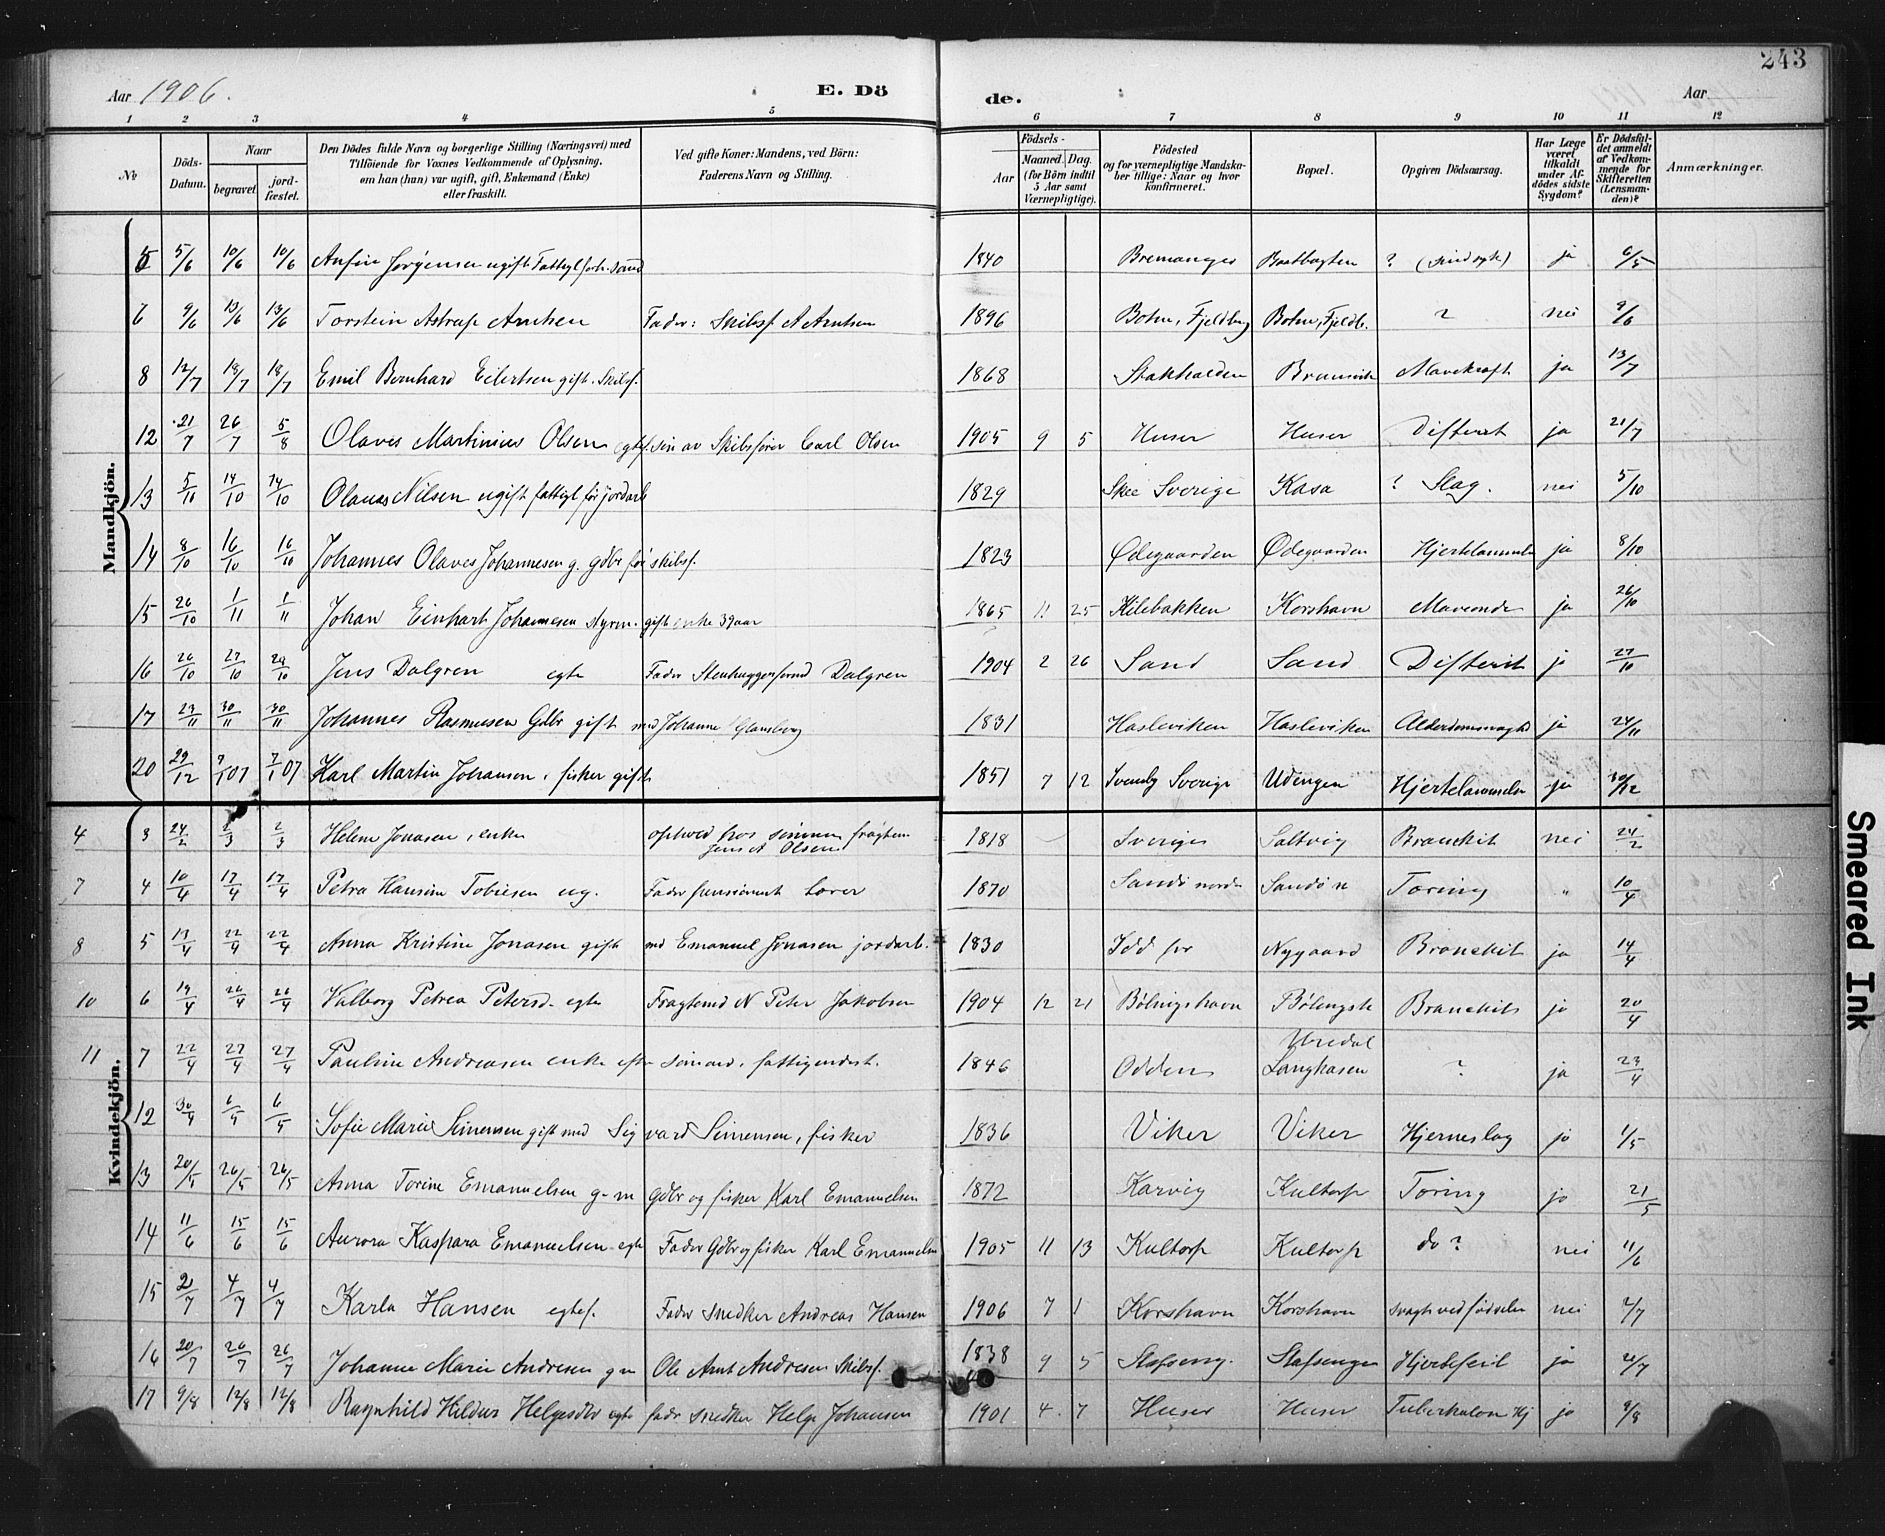 243
Aar 1906. E. Dö de. Aar
1 2 3 4 5 6 7 8 9 10 11 12
No Döds-Datum. Naar begravet. jord-fæstet. Den Dödes fulde Navn og borgerlige Stilling (Næringsvei) med Tilföiende for Voxnes Vedkommende af Oplysning, om han (hun) var ugift, gift, Enkemand (Enke) eller fraskilt. Ved gifte Koner: Mandens, ved Börn: Faderens Navn og Stilling. Födsels- Aar Maaned. Dag. (for Börn indtil 5 Aar samt Værnepligtige). Födested og for værnepligtige Mandskaber tillige: Naar og hvor konfirmeret. Bopæl. Opgiven Dödsaarsag. Har Læge været tilkaldt under Afdödes sidste Sygdom? Er Dödsfaldet anmeldt af Vedkommende for Skifteretten (Lensmanden)? Anmærkninger.
Mandkjön.
5 5/6 10/6 10/6 Anfin Jørgensen ugift Fattigl forh. sømd 1840 Bremanger ? (sindsyk) ja 6/5
6 9/6 13/6 13/6 Torstein Astrup Arntsen Fader: Skibsf A Arntsen 1896 ? nei 9/6
8 12/7 18/7 18/7 Emil Bernhard Eilertsen gift. Skibsf. 1868 Stakkalden Mavekræft ja 13/7
12 21/7 26/7 5/8 Olaves Martinius Olsen egtef. søn av Skibsfører Carl Olsen 1905 9 5 Huser Huser Difterit ja 21/7
13 5/10 14/10 14/10 Olaus Nilsen ugift fattigl før jordarb 1829 Skee Sverige Kasa ? Slag. nei 5/10
14 8/10 16/10 16/10 Johannes Olaves Johannesen g. gdbr før skibsf. 1823 Ødegaarden Ødegaarden Hjertelammelse ja 8/10
15 26/10 1/11 1/11 Johan Einhart Johannesen styrm. gift enke 39 aar 1865 11 25 Kilebakken Korshavn Maveonde ja 26/10
16 26/10 27/10 29/10 Jens Dalgren egte Fader Stenhuggerformd Dalgren 1904 2 26 Sand Sand Difterit ja 27/10
17 23/11 30/11 30/11 Johannes Rasmusen Gdbr gift med Johanne 1831 Hasleviken Hasleviken Alderdomssvaghd ja 24/11
20 29/12 7/1 07 7/1 07 Karl Martin Johansen, fisker gift 1851 7 12 Sverige Udengen Hjertelammelse ja 30/12
Kvindekjön.
4 3 24/2 2/3 2/3 Helene Jonasen, enke ophold hos sønnen fragtem Jens A Olsen 1818 Sverige Saltvig Bronckit nei 24/2
7 4 10/4 17/4 17/4 Petra Hansine Tobiesen ug. Fader pensioneret Lærer 1870 Sandø nordr Sandø n Tæring " 10/4
8 5 13/4 22/4 22/4 Anna Kristine Jonasen gift md Emanuel Jonasen jordarb. 1830 Idd Nygaard Bronckit ja 14/4
10 6 19/4 26/4 26/4 Valborg Petrea Petersd. egte Fragtemd N Peter Jakobsen 1904 12 21 Bølingshavn Bølingsh Bronckit ja 20/4
11 7 22/4 27/4 27/4 Pauline Andreasen enke efter sømand, fattigunderst. 1846 Odden Urdal Langhasen ? ja 23/4
12 30/4 6/5 6/5 Sofie Marie Simensen gift med Sigvard Simensen, fisker 1836 Viker Viker Hjerneslag ja 1/5
13 20/5 26/5 26/5 Anna Torine Emanuelsen g. m Gdbr og fisker Karl Emanuelsen 1872 Karvig Kultorp Tæring ja 21/5
14 11/6 15/6 15/6 Aurora Kaspara Emanuelsen egte Fader Gdbr og fisker Karl Emanuelsen 1905 11 13 Kultorp Kultorp do ? nei 11/6
15 2/7 4/7 4/7 Karla Hansen egtef. Fader snedker Andreas Hansen 1906 7 1 Korshavn Korshavn svagh. ved fødselen nei 2/7
16 20/7 26/7 26/7 Johanne Marie Andresen g m Ole Arnt Andresen Skibsf. 1838 9 5 Stafseng. Stafsengen Hjertefeil ja 21/7
17 9/8 12/8 12/8 Ragnhild Hildur Helgesdtr egte fadr snedker Helge Johansen 1901 4 7 Huser Huser Tuberkuløn Hj ja 9/8
Smeared Ink